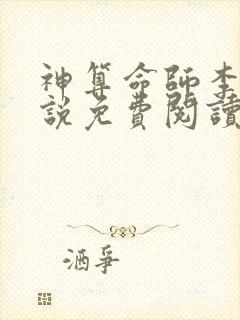 神算命師李
說免費閱讀
酒爭